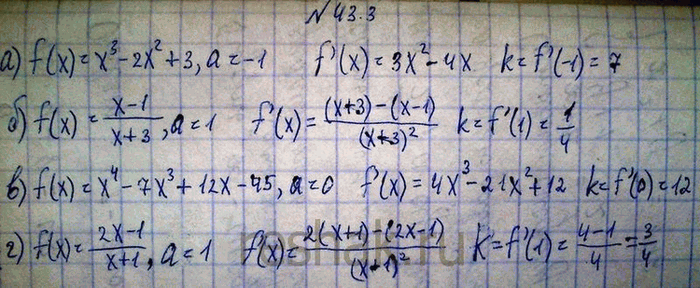 № 43.3
а) f(x) = x³ - 2x² + 3, a = -1 f'(x) = 3x² - 4x k = f'(-1) = 7
б) f(x) = (x-1)/(x+3), a = 1 f'(x) = ((x+3) - (x-1))/(x+3)² k = f'(1) = 1/4
в) f(x) = x⁴ - 7x³ + 12x - 45, a = 0 f'(x) = 4x³ - 21x² + 12 k = f'(0) = 12
г) f(x) = (2x-1)/(x+1), a = 1 f'(x) = (2(x+1) - (2x-1))/(x+1)² k = f'(1) = (4-1)/4 = 3/4